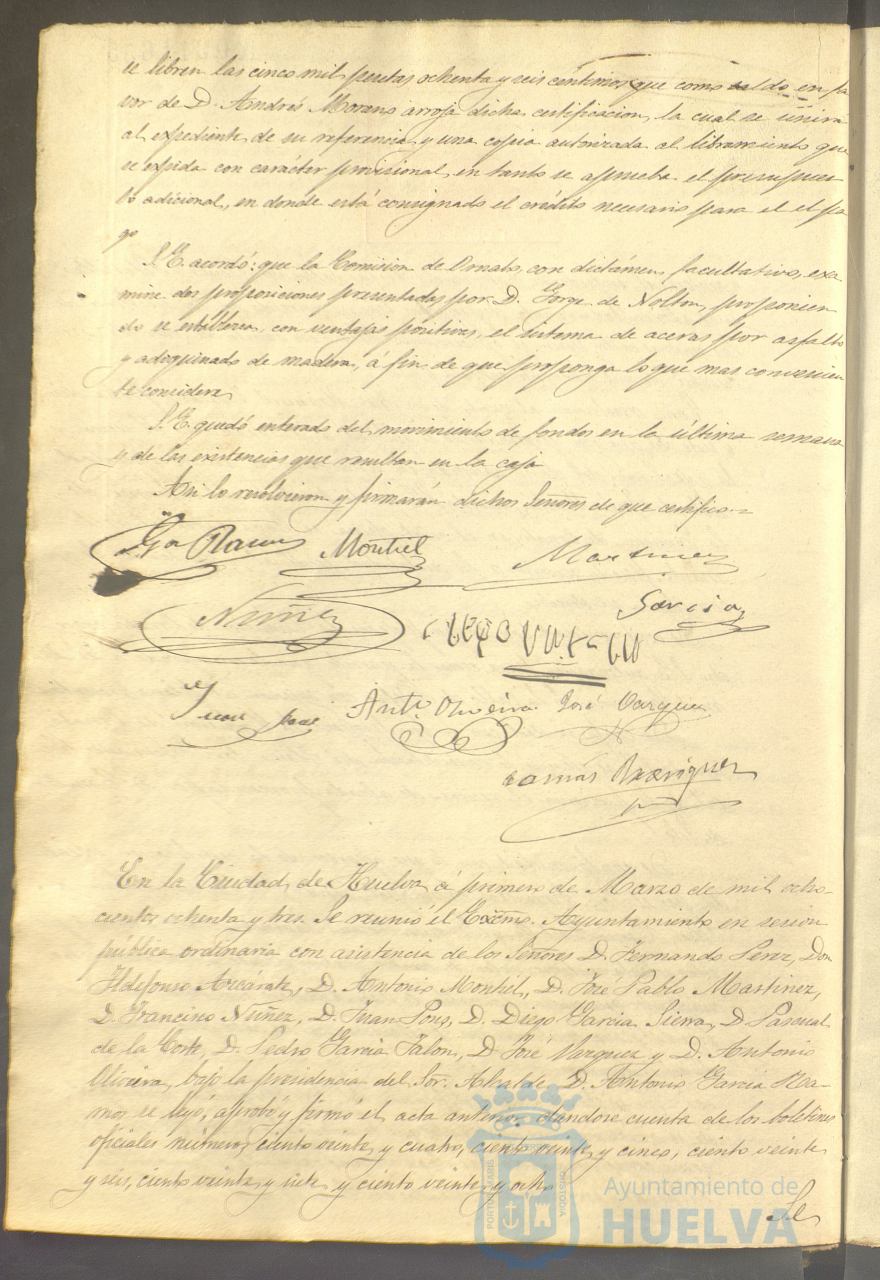 se libren las cinco mil pesetas ochenta y seis céntimos que como saldo en fa
vor de D. Andrés Moreno arroja dicha certificacion, la cual se unira
al expediente de su referencia y una copia autorizada al libramiento que
se expida con carácter provisional, en tanto se aprueba el presupues
to adicional, en donde está consignado el crédito necesario para el el pa
go
S. E. acordó: que la Comision de Ornato, con dictámen facultativo, exa
mine dos proposiciones presentadas por D. Jorge de Nolton, proponien
do se establezca, con ventajas positivas, el sistema de aceras por asfalto
y adoquinado de madera, á fin de que proponga lo que mas convenien
te considere
S. E. quedó enterado del movimiento de fondos en la última semana
y de las existencias que resultan en la caja
Asi lo resolvieron y firmarán dichos Señores de que certifico.=
Ga Ramos Montiel Martinez
Nuñez Garcia
Juan Pons Antº Oliveira José Vazquez
Tomás Rodriguez
En la Ciudad de Huelva á primero de Marzo de mil ocho-
cientos ochenta y tres. Se reunió el Excmo. Ayuntamiento en sesion
pública ordinaria con asistencia de los Señores D. Fernando Perez, Don
Ildefonso Arcárate, D. Antonio Montiel, D. José Pablo Martinez,
D. Francisco Nuñez, D. Juan Pons, D. Diego Garcia Sierra, D. Pascual
de la Corte, D. Pedro Garcia Jalon, D José Vazquez y D. Antonio
Oliveira, bajo la presidencia del Sor. Alcalde D. Antonio Garcia Ra-
mos, se leyó, aprobó y firmó el acta anterior dandose cuenta de los boletines
oficiales números ciento veinte y cuatro, ciento veinte y cinco, ciento veinte
y seis, ciento veinte y siete y ciento veinte y ocho
Se
PORTUS MARIS
CUSTODIA
Ayuntamiento de
HUELVA